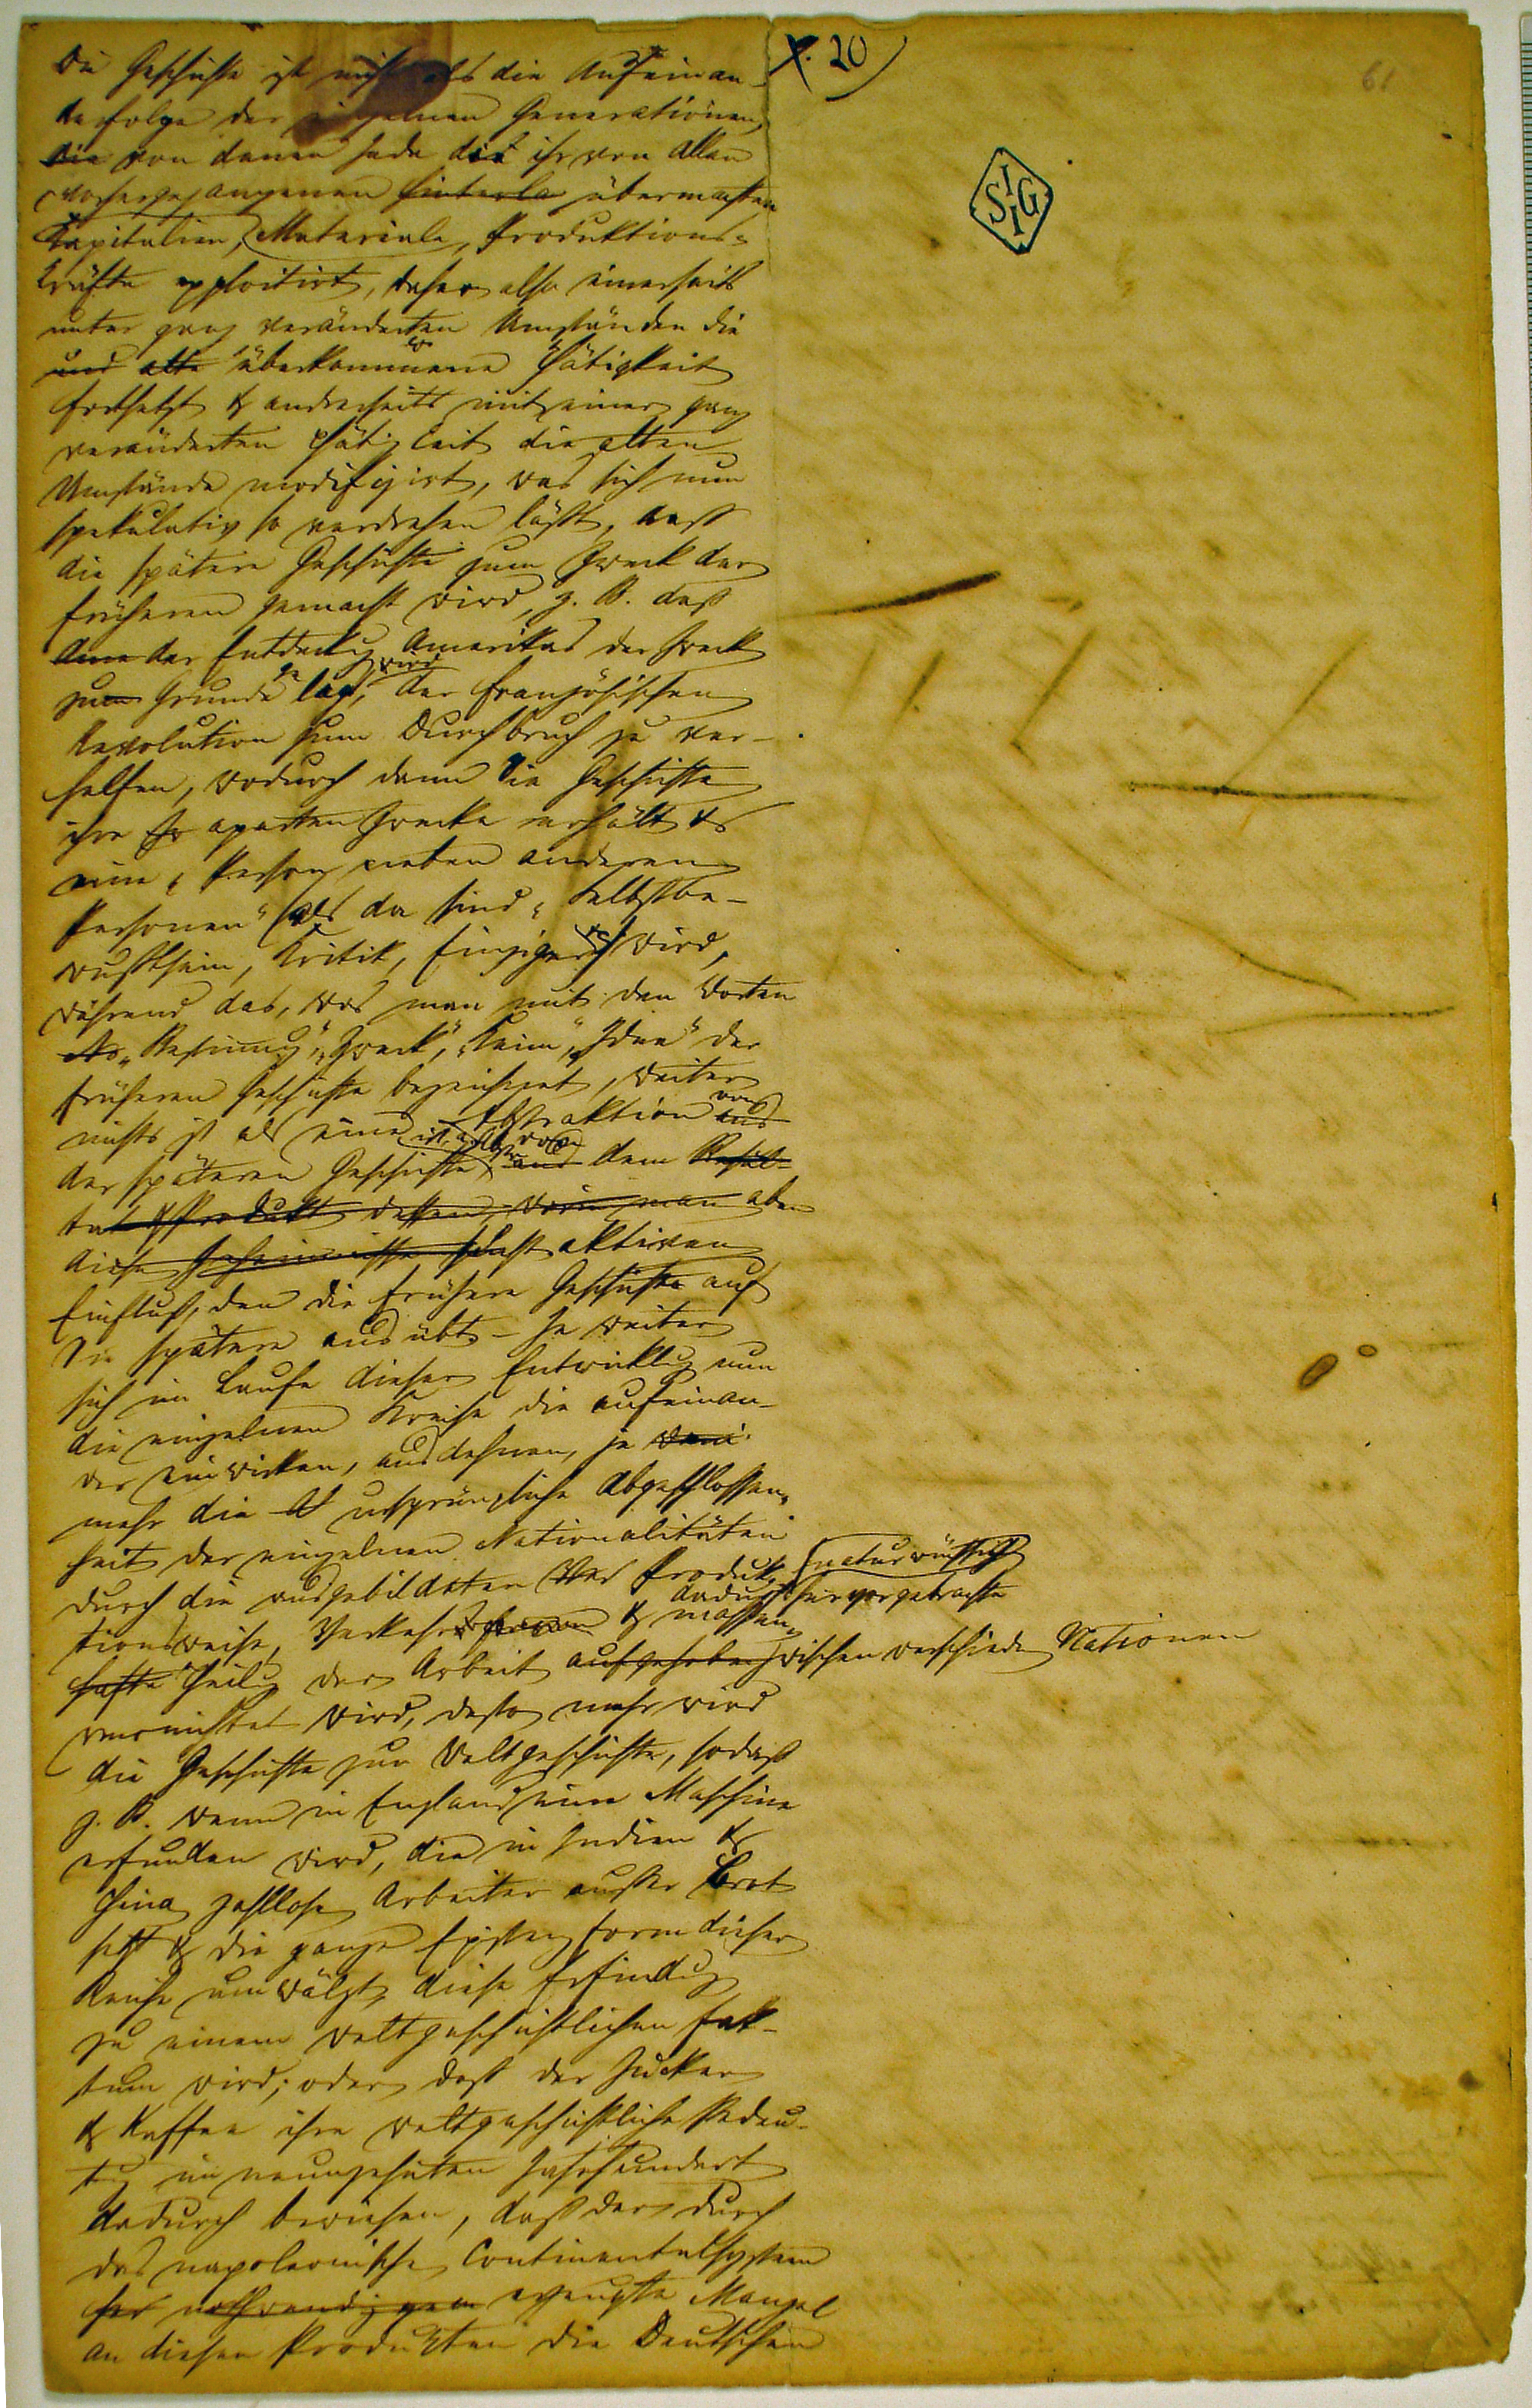 20)
61
SIIG
Die Geschichte ist nichts als die Aufeinan-
derfolge der einzelnen Generationen,
die von denen jede die ihr von allen
vorhergegangenen hinterla übermachten
Kapitalien, Materiale, Produktions-
kräfte exploitirt, daher also einerseits
unter ganz veränderten Umständen die
und alte überkommene Thätigkeit
fortsetzt & andrerseits mit einer ganz
veränderten Thätigkeit die alten
Umstände modifizirt, was sich nun
spekulativ so verdrehen läßt, daß
die spätere Geschichte zum Zweck der
früheren gemacht wird, z. B. daß
der Entdeckg Amerikas der Zweck
zum Grunde gelegt wird, der französischen
Revolution zum Durchbruch zu ver-
helfen, wodurch dann die Geschichte
ihre aparten Zwecke erhält &
eine „Person neben anderen
Personen“ (als da sind „Selbstbe-
wußtsein, Kritik, Einziger“ &c) wird,
während das, was man mit den Worten
„Bestimmung“, „Zweck“, „Keim“, „Idee“ der
früheren Geschichte bezeichnet, weiter
nichts ist als eine Abstraktion aus von
der späteren Geschichte ist, Abstr. von aus dem Resul-
tat & Produkt dessen, worin man eben
diese Geheimnisse aktiven
Einfluß, den die frühere Geschichte auf
die spätere ausübt. – Je weiter
sich im Laufe dieser Entwicklg nun
die einzelnen Kreise, die aufeinan-
der einwirken, ausdehnen, je
mehr die ursprüngliche Abgeschlossen-
heit der einzelnen Nationalitäten
durch die ausgebildete Produk-
tionsweise, Verkehr & dadurch naturwüchsig hervorgebrachte massen-
hafte Theilg der Arbeit aufgehoben zwischen verschiedn Nationen
vernichtet wird, desto mehr wird
die Geschichte zur Weltgeschichte, sodaß
z. B. wenn in England eine Maschine
erfunden wird, die in Indien &
China zahllose Arbeiter außer Brot
setzt & die ganze Existenzform dieser
Reiche umwälzt, diese Erfindg
zu einem weltgeschichtlichen Fak-
tum wird; oder daß der Zucker
& Kaffee ihre weltgeschichtliche Bedeu-
tg im neunzehnten Jahrhundert
dadurch bewiesen, daß der durch
das napoleonische Continentalsystem
nothwendig erzeugte Mangel
an diesen Produkten die Deutschen